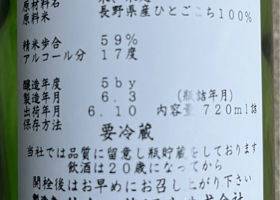 原材料名
原料米 長野県産ひとごこち100%
精米歩合 59%
アルコール分 17度
醸造年度 5by
製造年月 6.3 (瓶詰年月)
出荷年月 6.10 内容量720ml詰
保存方法
要冷蔵
当社では品質に留意し瓶貯蔵をしております
飲酒は20歳になってから
開栓後はお早めにお召し上がり下さい